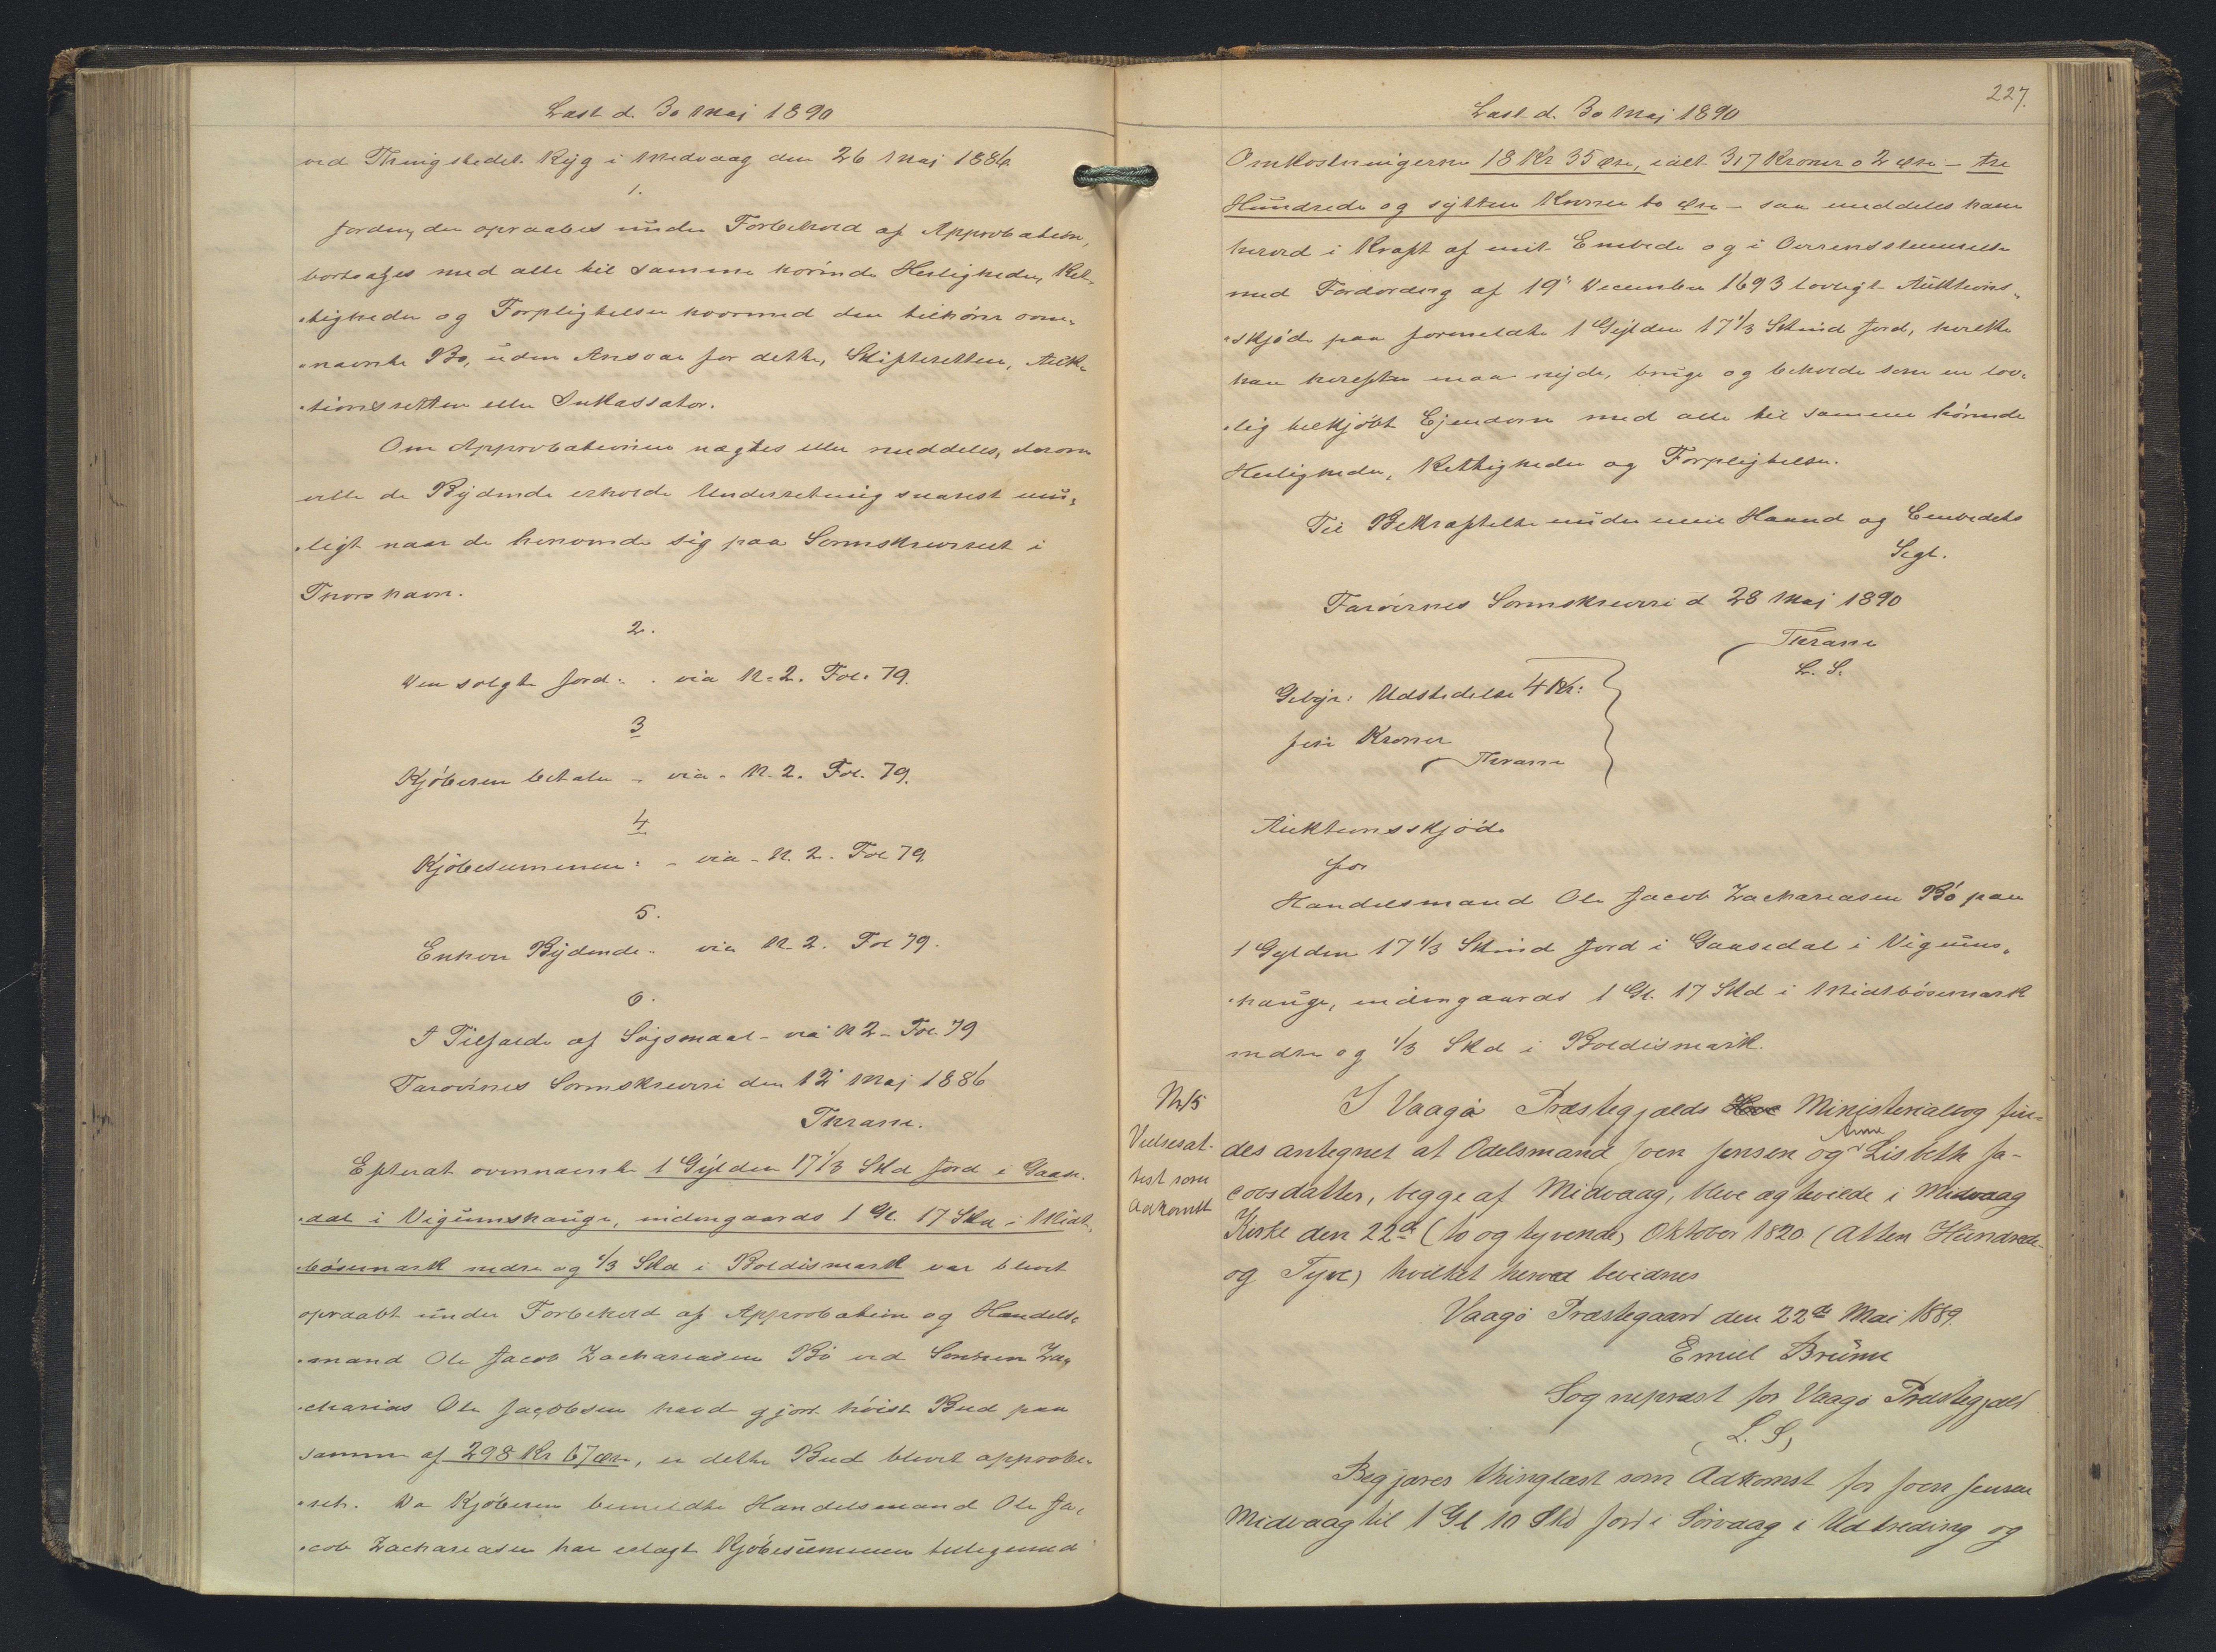 Læst d. 30 Maj 1890
ved Thingstedet Ryg i Midvaag den 26 Maj 1886
1.
Jorden, der opraabes under Forbehold af Approbation,
bortsælges med alle til samme hørende Herligheder, Ret-
tigheder og Forpligtelser hvormed den tilhører oven-
nævnte Bo, uden Ansvar for dette, Skifteretten, Auk-
tionsretten eller Inkassator.
Om Approbationen nægtes eller meddeles, derom
ville de Bydende erholde Underretning snarest mu-
ligt naar de henvende sig paa Sorenskriveriet i
Thorshavn.
2.
Den solgte Jord: . via N. 2. Fol. 79.
3
Kjøberen betaler - via - N. 2. Fol. 79.
4
Kjøbesummen: - via - N. 2. Fol 79.
5.
Enhver Bydende .. via N. 2. Fol 79.
6.
I Tilfælde af Søgsmaal - via N 2 - Fol. 79
Færøernes Sorenskriveri den 12 Maj 1886
Thrane.
Efterat ovennævnte 1 Gylden 17 1/3 Skd Jord i Gaase-
dal i Vigumshauge, indengaards 1 Gl. 17 Skd i Midt-
bøsemark nedre og 1/3 Skd i Boldismark var blevet
opraabt under Forbehold af Approbation og Handels-
mand Ole Jacob Zachariasen Bø ved Sønnen Za-
charias Ole Jacobsen havde gjort høist Bud paa
samme af 298 Kr 67 Øre, er dette Bud blevet approbe-
ret. Da Kjøberen bemeldte Handelsmand Ole Ja-
cob Zachariasen har erlagt Kjøbesummen tilligemed
227.
Læst d. 30 Maj 1890
Omkostningerne 18 Kr 35 Øre, ialt 317 Kroner 02 Øre - tre
Hundrede og sytten Kroner to Øre - saa meddeles ham
herved i Kraft af mit Embede og i Overensstemmelse
med Forordning af 19' December 1693 lovligt Auktions-
skjøde paa formeldte 1 Gylden 17 1/3 Skind Jord, hvilke
han herefter maa nyde, bruge og beholde som en lov-
lig tilkjøbt Ejendom med alle til samme hørende
Herligheder, Rettigheder og Forpligtelser.
Til Bekræftelse under min Haand og Embedets
Segl.
Færøernes Sorenskriveri d 28 Maj 1890
Thrane
L. S.
Gebyr: Udstedelse 4 Kr:
fire Kroner
Thrane
Auktionsskjøde
for
Handelsmand Ole Jacob Zachariasen Bø paa
1 Gylden 17 1/3 Skind Jord i Gaasedal i Vigums-
hauge, indengaards 1 Gl. 17 Skd i Midtbøsemark
nedre og 1/3 Skd i Boldismark.
Nr 15
Vielsesat-
test som
Adkomst
I Vaagø Præstegjælds Ministerialbog fin-
des antegnet at Odelsmand Joen Jensen og Anne Lisbeth Ja-
cobsdatter, begge af Midvaag, bleve ægteviede i Midvaag
Kirke den 22de (to og tyvende) Oktober 1820 (Atten Hundrede
og Tyve) hvilket herved bevidnes
Vaagø Præstegaard den 22de Mai 1889.
Emiel Brünn
Sognepræst for Vaagø Præstegjæld
(L. S)
Begjæres thinglæst som Adkomst for Joen Jensen
Midvaag til 1 Gl 10 Skd Jord i Sørvaag i Udbreding og